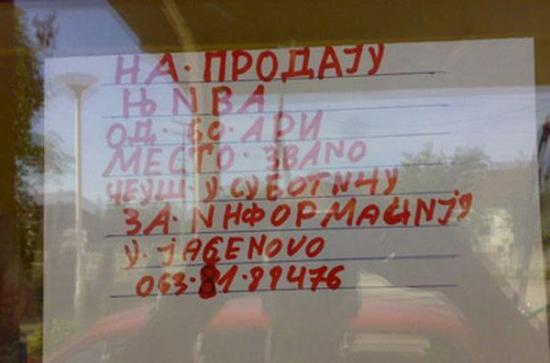 НА·ПРОДАЈУ
ЊNВА
ОД·60·АРИ
МЕСТО·ЗВАNО
ЧЕУШ·У СУБОТNЦУ
ЗА·NНФОРМАЦNЈУ
У·ЈАБЕNОVО
063·81·89476